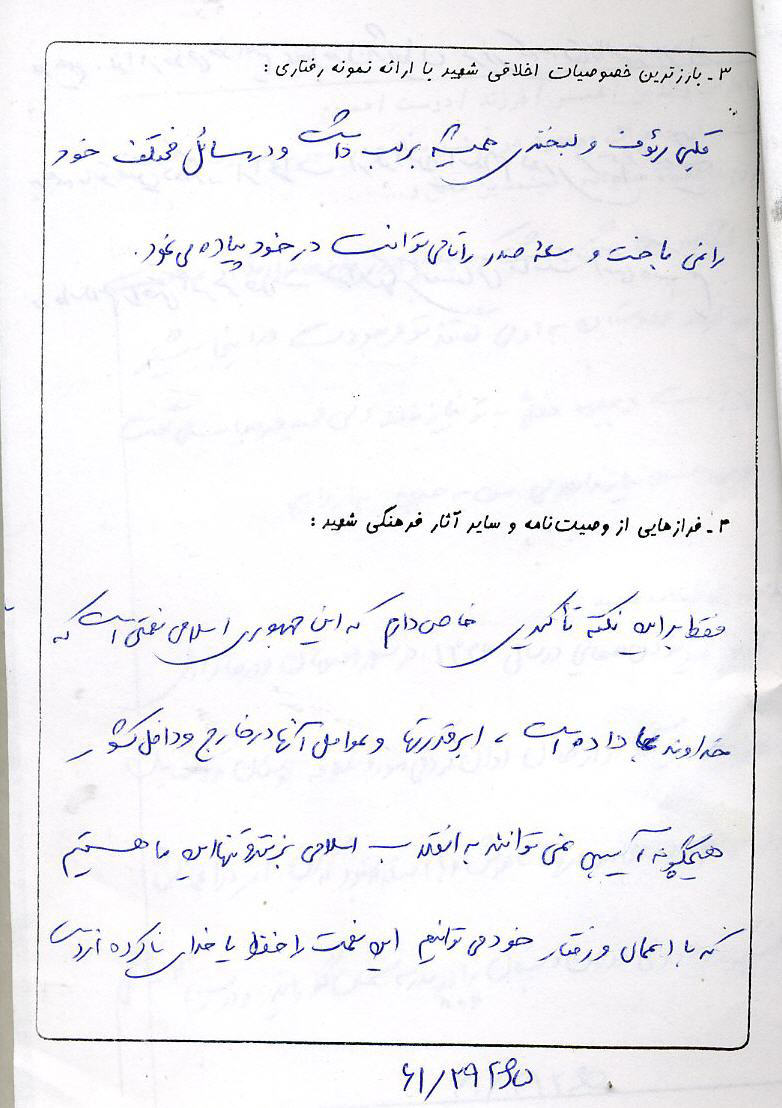 ۳ـ بارزترین خصوصیات اخلاقی شهید با ارائه نمونه رفتاری :
قلبی رئوف و لبخندی همیشه بر لب داشت و در مسائل مختلف خود
را نمی باخت و سعهٔ صدر را تا می توانست در خود پیاده می نمود.
۴ـ فرازهایی از وصیت‌نامه و سایر آثار فرهنگی شهید :
فقط بر این نکته تأکیدی خاص دارم که این جمهوری اسلامی نعمتی است که
خداوند بما داده است ، ابرقدرتها و عوامل آنها در خارج و داخل کشور
هیچگونه آسیبی نمی توانند به انقلاب اسلامی بزنند و تنها این ما هستیم
که با اعمال و رفتار خود می توانیم این نعمت را حفظ یا خدای ناکرده از دست
۶۱/۲۹۲۶۵